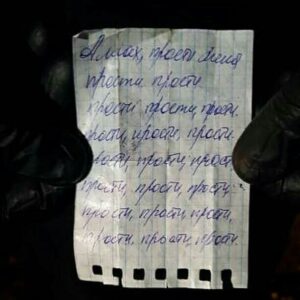 Аллах, прости меня
прости прости
прости прости, прости
прости, прости, прости.
прости, прости, прости
прости, прости, прости
прости, прости, прости,
прости, прости, прости.